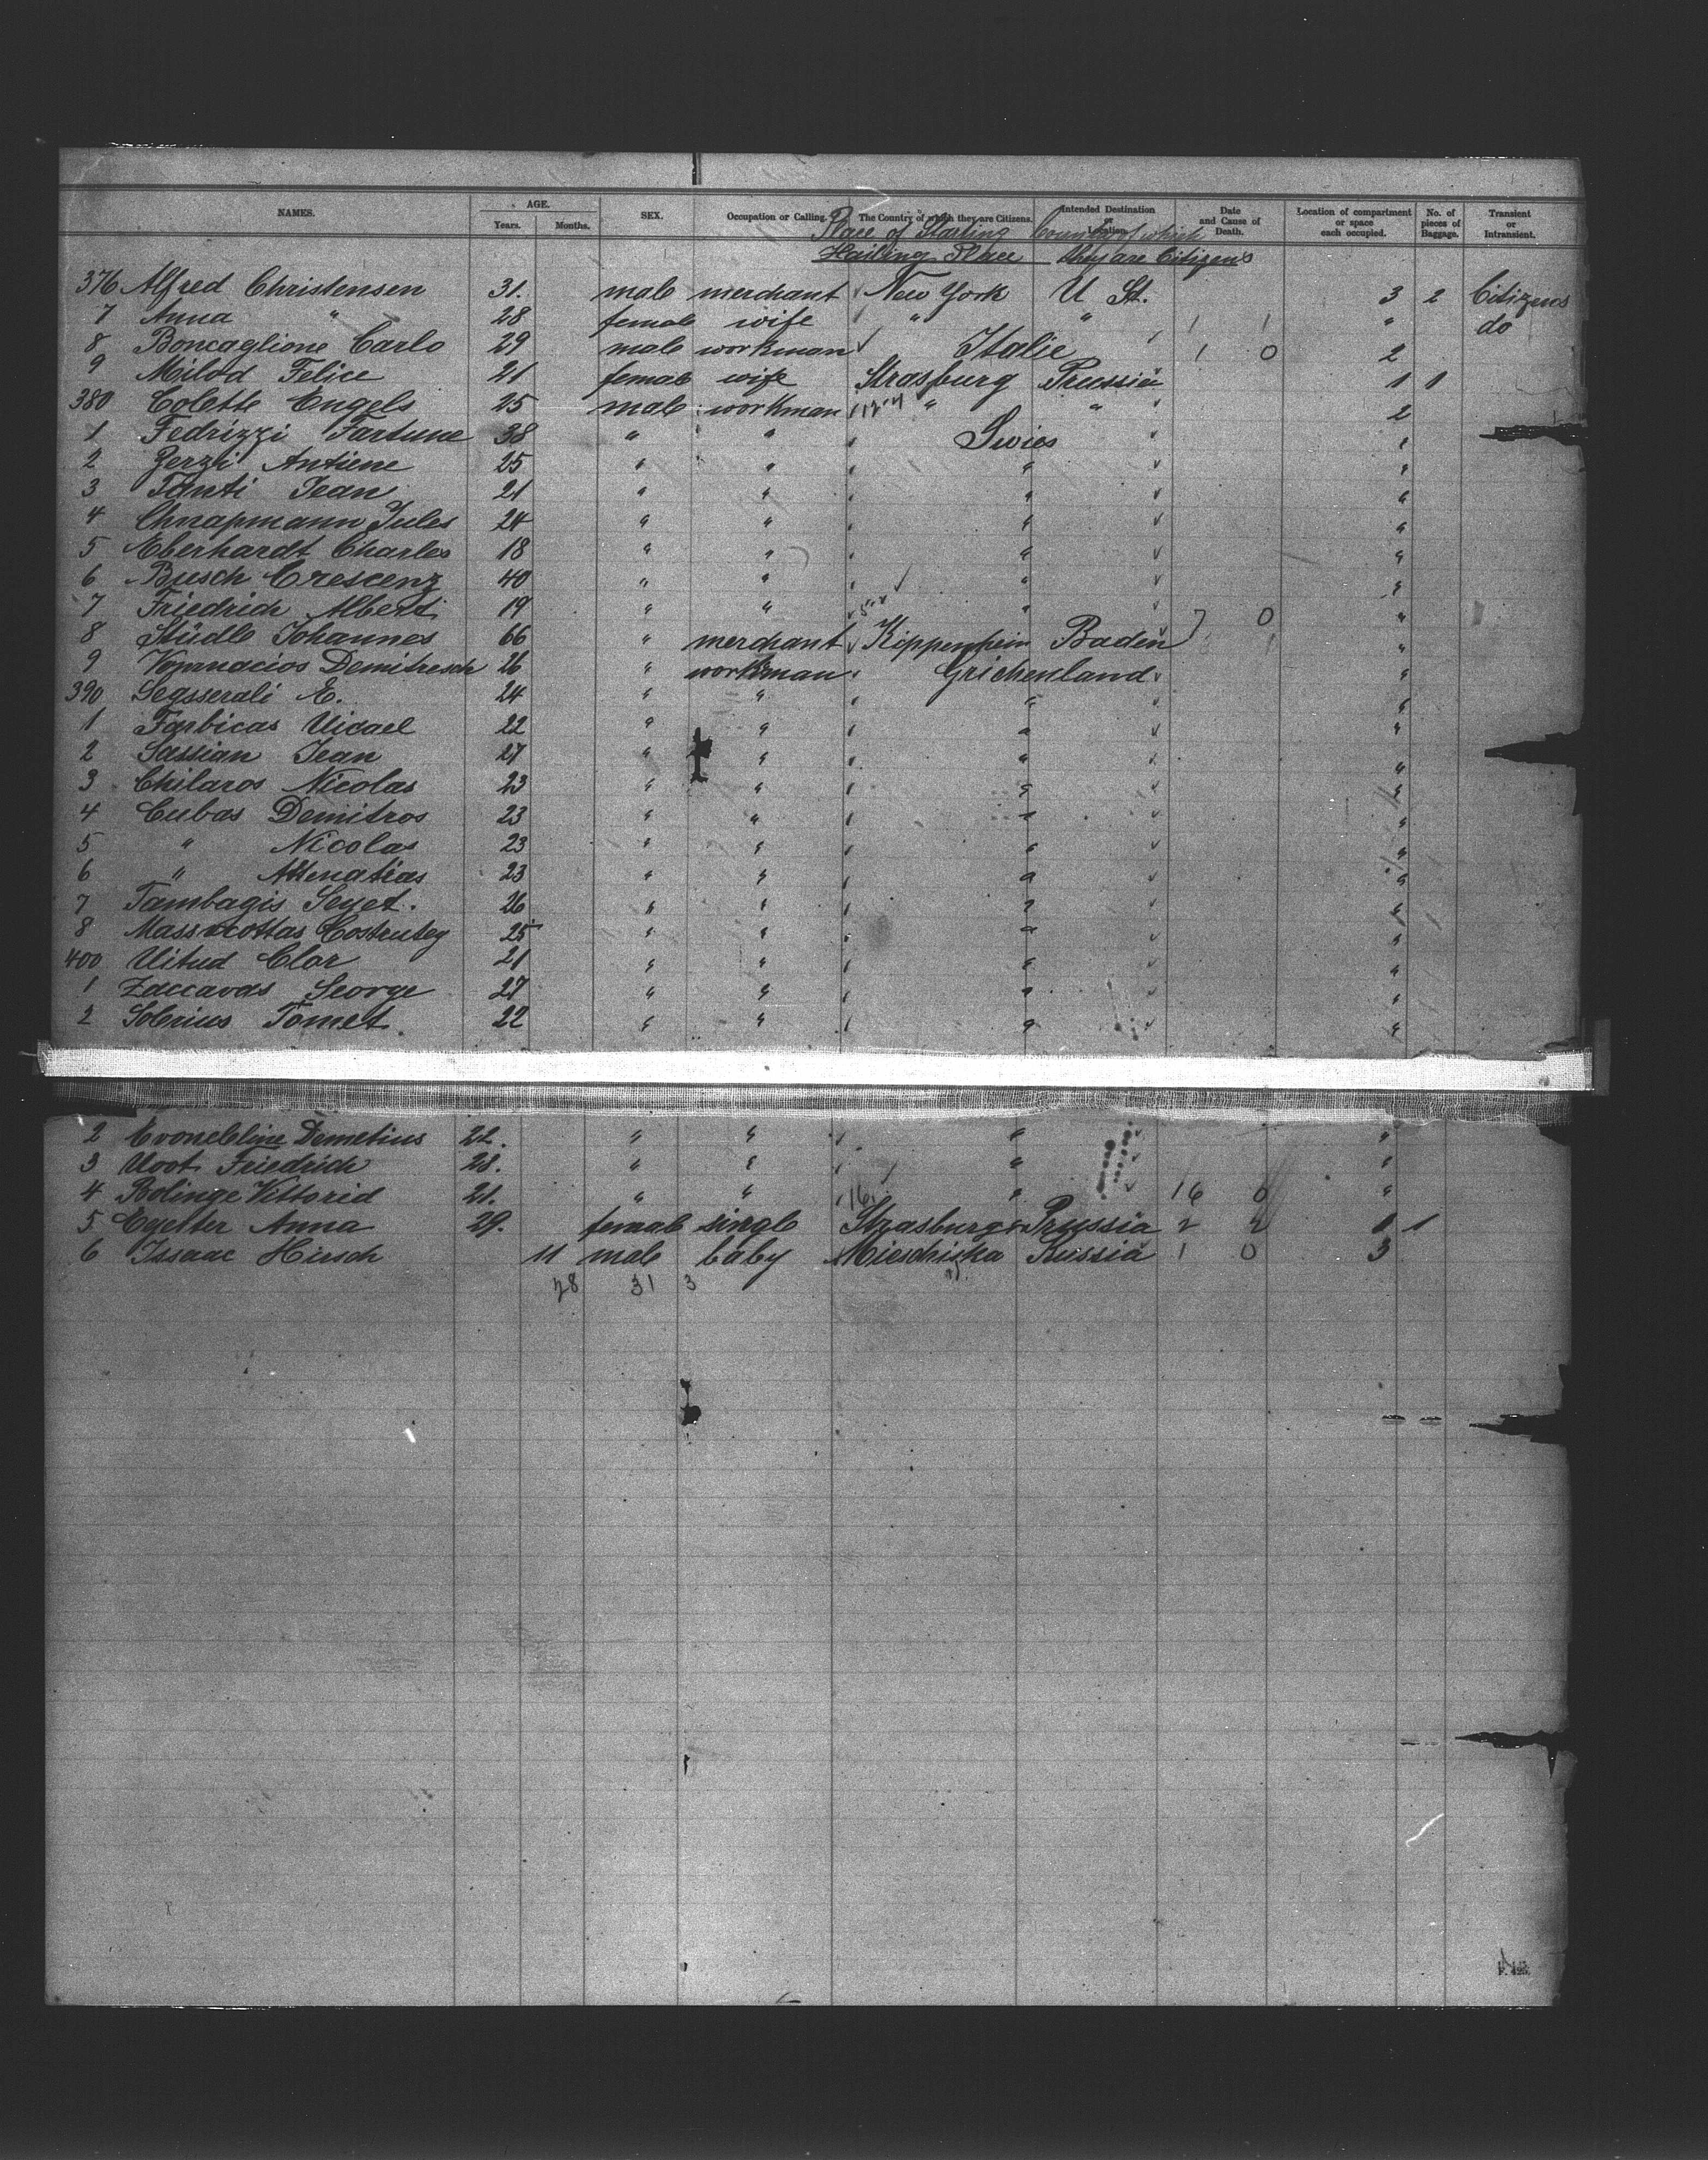 NAMES. AGE. Years. Months. SEX. Occupation or Calling. The Country of which they are Citizens. Intended Destination or Location. Date and Cause of Death. Location of compartment or space each occupied. No. of pieces of Baggage. Transient or Intransient.
Place of Starting Country of which
Hailing Place they are Citizens
376 Alfred Christensen 31. male merchant New York U St. 3 2 Citizens
7 Anna " 28 female wife " " 1 1 " do
8 Boncaglione Carlo 29 male workman Italie 1 0 2
9 Milod Felice 21 female wife Strasburg Prussia 1 1
380 Colette Engels 25 male workman " " 2
1 Fedrizzi Fartune 38 " " Swies "
2 Zerzi Antiene 25 " " " "
3 Tanti Jean 21 " " " "
4 Chnapmann Jules 24 " " " "
5 Eberhardt Charles 18 " " " "
6 Busch Crescenz 40 " " " "
7 Friedrich Albert 19 " " " 7 0 "
8 Stüdle Johannes 66 " merchant Kippenheim Baden "
9 Demitresch 26 " workman Grichenland "
390 Segsserali E. 24 " " " "
1 Farbicas Uicael 22 " " " "
2 Sassian Jean 27 " " " "
3 Chilaros Nicolas 23 " " " "
4 Cubas Demitros 23 " " " "
5 " Nicolas 23 " " " "
6 " Athenatias 23 " " " "
7 Tambagis Seyet. 26 " " " "
8 Massocottas Costrutey 25 " " " "
400 Uitud Clar 21 " " " "
1 Zaccavas George 27 " " " "
2 Solerius Tomet. 22 " " " "
2 Evonebline Demetius 22. " " " "
3 Uoot Friedrich 28. " " " "
4 Bolinge Vittorid 21. " " 16 " 16 0 "
5 Egetter Anna 29. female single Strasburg Prussia 2 2 1 1
6 Issaac Hirsch 11 male baby Mieschiska Russia 1 0 3
28 31 3